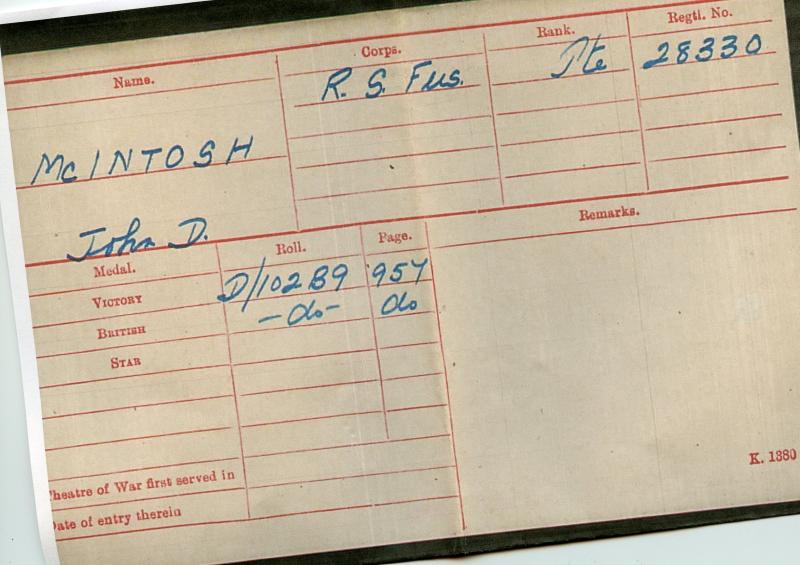 Name. Corps. Rank. Regtl. No.
R. S. Fus. Pte 28330
McINTOSH
John D.
Medal. Roll. Page. Remarks.
VICTORY D/102B9 957
BRITISH -do- do
STAR
Theatre of War first served in
Date of entry therein
K. 1380